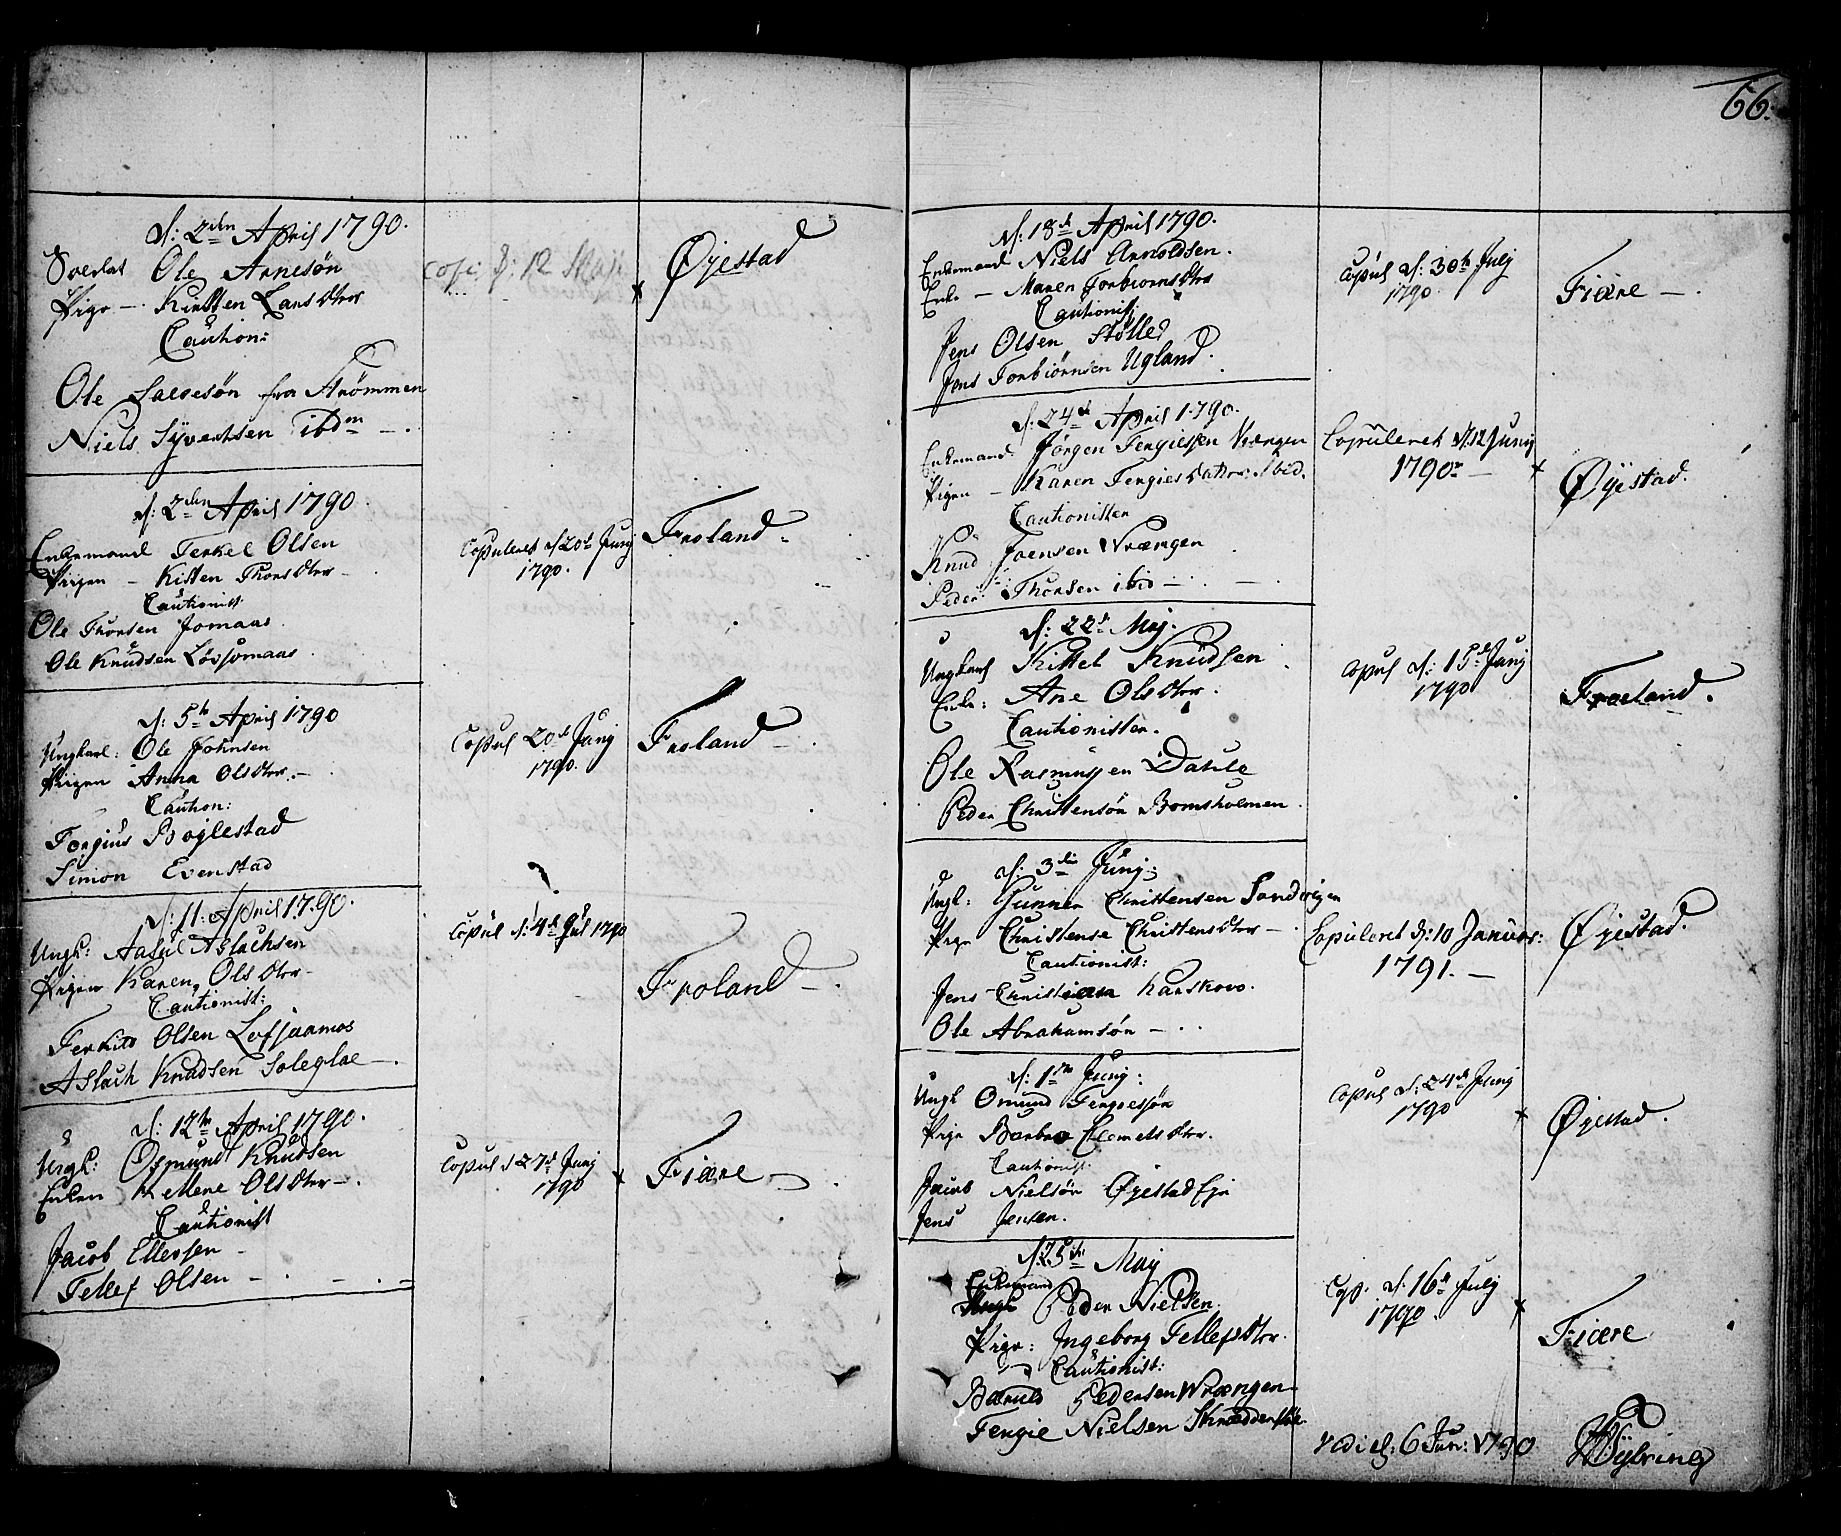 66.
d: 2den April 1790.
Ole Arnesøn
Pige — Kirsten Larsdtter
Caution:
Ole Salvesøn fra Strømmen
Niels Syvertsen ibdm — .
Copi: d: 12 Maji
Øyestad
d: 2den April 1790.
Enkemand Terkel Olsen
Pigen — Kisten Thorsdtter
Cautionist
Ole Thorsen Jomaas.
Ole Knudsen Løvjomaas.
Copuleret d 20de Junj
1790.
Froland.
d: 5te April 1790
Ungkarl: Ole Johnsen
Pigen Anna Olsdtter. —
Caution:
Torgius Bøylestad
Simon Evenstad
Copul 20de Junj
1790.
Froland — .
d: 11: April 1790.
Ungk: Aasul Aslachsen
Pigen Karen Olsdtter —
Cautionist:
Olsen Lofjaamos
Aslach Knudsen Soleglae — .
Copul d: 4de Jul 1790
Froland — .
d: 12te April 1790.
Ungk: Osmund Knudsen
Enken Mellene Olsdtter — .
Cautionist
Jacob Ellevsen —
Tellef Olsen — . — . =
Copul d 27de Junj
1790
Fiære — .
d: 18de April 1790.
Enkemand Niels Arnoldsen.
Enke — Maren Torbiornsdtter
Cautionist
Jens Olsen Støllee
Jens Torbiørnsen Ugland.
Copul d: 30te Julj
1790.
Fiære — .
d: 24de April 1790.
Enkemand Jørgen Tergiessen Vrængen
Pigen — Karen Tergiesdatter ibid.
Cautionisten
Knud Joensen Vrængen
Peder Thorsen ibid — . — .
Copuleret d. 12 Junij
1790. —
Øyestad.
d: 22de Maj.
Ungkarl Kittel Knudsen
Enke: Ane Olsdtter.
Cautionisten.
Ole Rasmussen Dahle
Peder Christensøn Bomsholmen
Copul d: 15de Junj
1790
Froeland.
d: 3die Junj:
Ungk: Gunner Christensen Sandvigen
Pige Christense Christensdtter —
Cautionist:
Jens Christian
Ole Abrahamsøn — . .
Copuleret d: 10 Januar:
1791. —
Øyestad.
d: 1ste Junj:
Ungk Omund Tergiesøn
Pige Barbro Clemetsdtter.
Cautionist:
Jacob Nielsøn Øyestad Eje
Jens Jensen.
Copul d. 24de Junj
1790
Øyestad.
d: 25de Maij
Enkemand
Ungk Peder Nielsen.
Pige: Ingeborg Tellefsdtter.
Cautionist:
Baruld Pedersen Wrængen
Tergie Nielsen
Cop. d: 16de Julj
1790
Fiære
Vedi d: 6 Jun: 1790